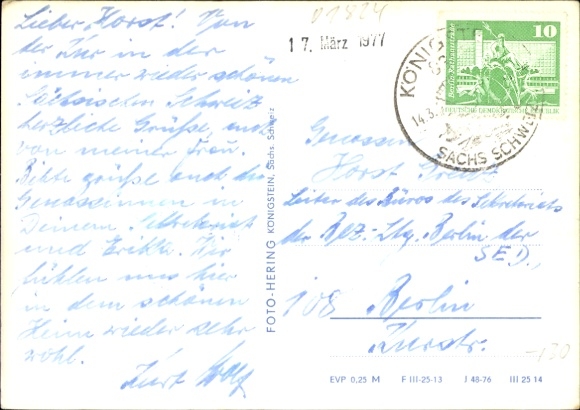 Lieber Horst! Von
der Kur in der
immer wieder schönen
Sächsischen Schweiz
herzliche Grüße, auch
von meiner Frau.
Bitte grüße auch die
Genossinnen in
Deinem Sekretariat
und Erika. Wir
fühlen uns hier
in dem schönen
Heim wieder sehr
wohl.
Kurt
01824
17. März 1977
KÖNIGSTEIN
14.3.
SÄCHS SCHWEIZ
10
Berlin, Rathausstraße
DEUTSCHE DEMOKRATISCHE REPUBLIK
FOTO-HERING KÖNIGSTEIN, Sächs. Schweiz
Genossen
Horst
Leiter des Büros des Sekretariats
der Bez.-Ltg. Berlin der
SED.,
108 Berlin
Kurstr.
-130
EVP 0,25 M F III-25-13 J 48-76 III 25 14